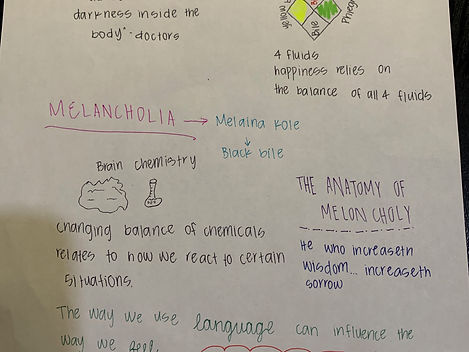 darkness inside the
body" - doctors
yellow
Bile
4 fluids
happiness relies on
the balance of all 4 fluids
MELANCHOLIA → Melaina Kole
↓
Black bile
Brain chemistry
changing balance of chemicals
relates to how we react to certain
situations.
THE ANATOMY OF
MELON CHOLY
He who increaseth
wisdom... increaseth
sorrow
The way we use language can influence the
way we feel.